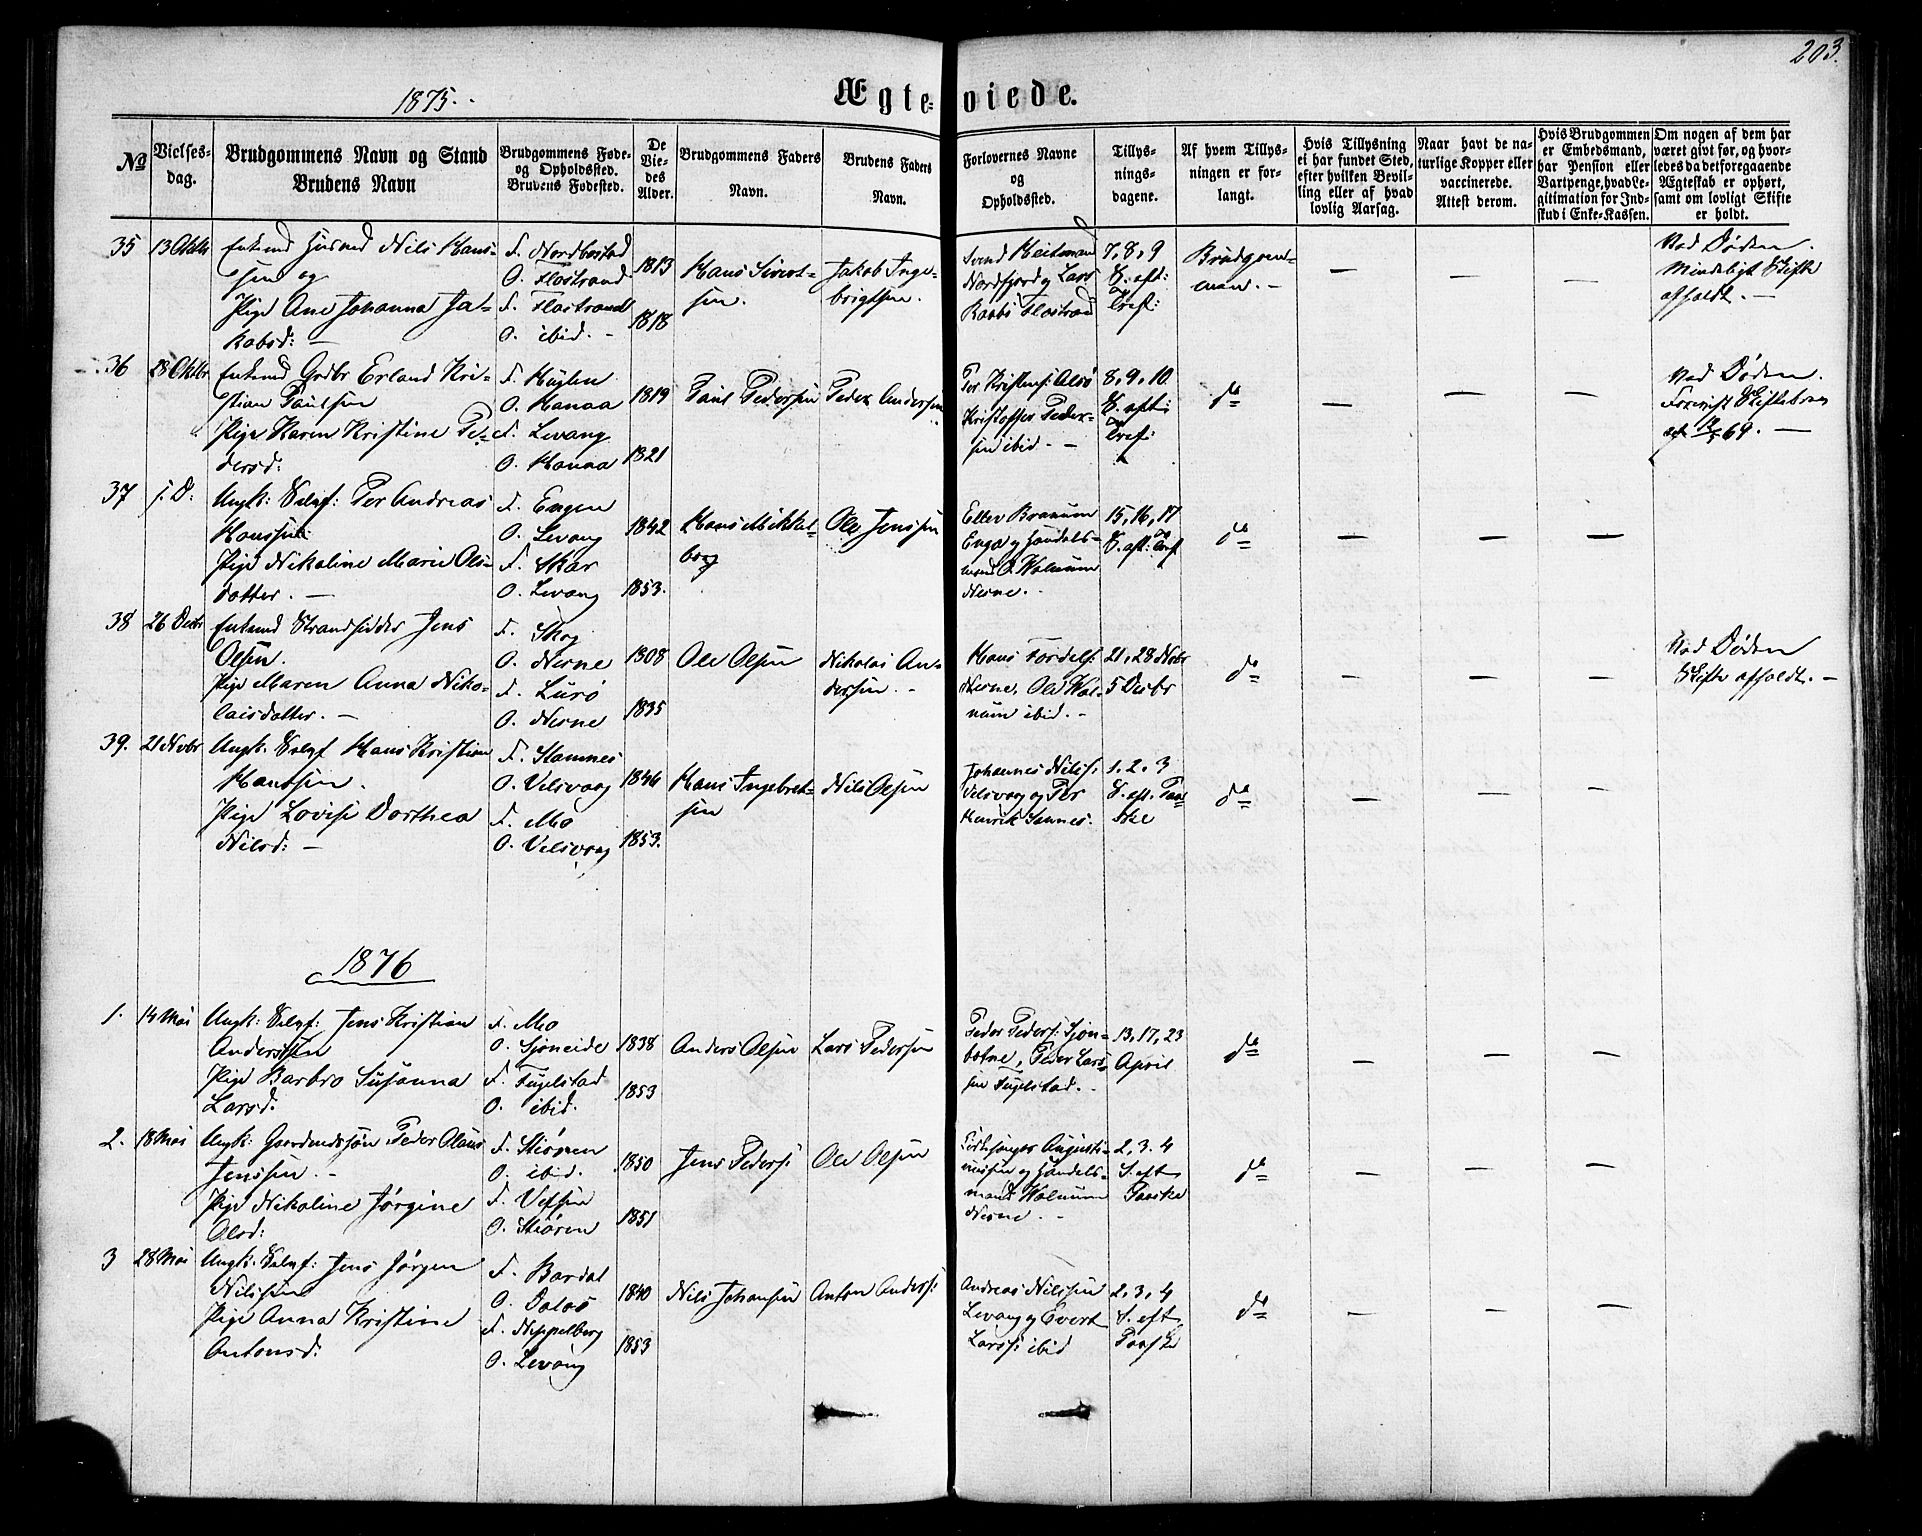 203.
1875.
Ægteviede.
No
Vielsesdag.
Brudgommens Navn og Stand
Brudens Navn
Brudgommens Føde- og Opholdssted.
Brudens Fødested.
De Viedes Alder.
Brudgommens Faders Navn.
Brudens Faders Navn.
Forlovernes Navne og Opholdssted.
Tillysningsdagene.
Af hvem Tillysningen er forlangt.
Hvis Tillysning ei har fundet Sted, efter hvilken Bevilling eller af hvad lovlig Aarsag.
Naar havt de naturlige Kopper eller vaccinerede. Attest derom.
Hvis Brudgommen er Embedsmand, har Pension eller Vartpenge, hvad Legitimation for Indskud i Enke-Kassen.
Om nogen af dem har været gift før, og hvorledes da det foregaaende Ægteskab er ophørt, samt om lovligt Skifte er holdt.
35 13 Oktbr
Enkemd Husmd Nils Hans-
sen og
Pige Ane Johanna Ja-
kobsd: —
F. Nordbostad
O. Flostrand
F. Flostrand
O. ibid. —
1813
1818
Hans Sivert-
sen.
Jakob Inge-
brigtsen.
Svend Heitmand
Nordfjord og Lars
Rabbs Flostrand
7, 8, 9
S. eft:
Tref:
Brudgom-
men. —
Ved Døden.
Mindeligt Skifte
afholdt. —
36 28 Oktbr
Enkemd Grdbr Erland Kri-
stian Paulsen
Pige Karen Kristine Pe-
dersd:
F. Huglen
O. Hanaa
F. Levang
O. Hanaa
1819
1821
Paul Pedersen
Peder Andersen
Per Kristens: Alsø
Kristoffer Peder-
sen ibid. —
8, 9, 10
S. eft:
Tref:
do
Ved Døden.
69. —
37 s. D.
Ungk: Selvf: Per Andreas
Hanssen
Pige Nikoline Marie Ols-
datter. —
F. Engen
O. Levang
F. Skar
O. Levang
1842
1853.
Hans Mikkel-
borg
Ole Jenssen
Eller Branum
Enga og Handels-
mand O. Walnum
Nesne.
15, 16, 17
S. eft: Tref
do
38 26 Decbr
Enkemd Strandsidder Jens
Olsen.
Pige Maren Anna Niko-
laisdatter. —
F. Skog
O. Nesne
F. Lurø
O. Nesne
1808
1835
Ole Olsen
Nikolai An-
dersen. —
Hans Tordels:
Nesne, Ole Wal-
num ibid. —
21, 28 Novbr
5 Decbr
do
Ved Døden
Skifte afholdt. —
39. 21 Novbr
Ungk. Selvf Hans Kristian
Hanssen.
Pige Lovise Dorthea
Nilsd: —
F. Hamnes
O. Velsvaag
F. Mo
O. Velsvaag
1846
1853.
Hans Ingebret-
sen
Nils Olsen
Johannes Nils:
Velsvaag og Per
Henrik Sannes.
1. 2. 3
S. eft. Paa-
ske
do
1876
1. 14 Mai
Ungk: Selvf: Jens Kristian
Anderssen
Pige Barbro Susanna
Larsd.
F. Mo
O. Sjoneide
F. Fugelstad
O. ibid.
1838
1853
Anders Olsen
Lars Pedersen
Peder Peders: Sjon-
botne, Peder Lars-
sen Fugelstad. —
13, 17, 23
April
do
2. 18 Mai
Ungk: Gaardmdssøn Peder Olaus
Jenssen. —
Pige Nikoline Jørgine
Olsd:
F. Stiøren
O. ibid.
F. Vefsen
O. Stiøren
1850
1851
Jens Peders:
Ole Olsen
Kirkesanger Augusti-
nussen og Handels-
mand Walnum
Nesne. —
2, 3. 4
S. eft
Paaske
do
3 28 Mai
Ungk. Selvf: Jens Jørgen
Nilssen
Pige Anna Kristine
Antonsd.
F. Bardal
O. Dalos
F. Neppelberg
O. Levang
1840
1853
Nils Johansen
Anton Anders:
Andreas Nilssen
Levang og Evert
Larss: ibid
2, 3, 4
S. eft
Paaske
do